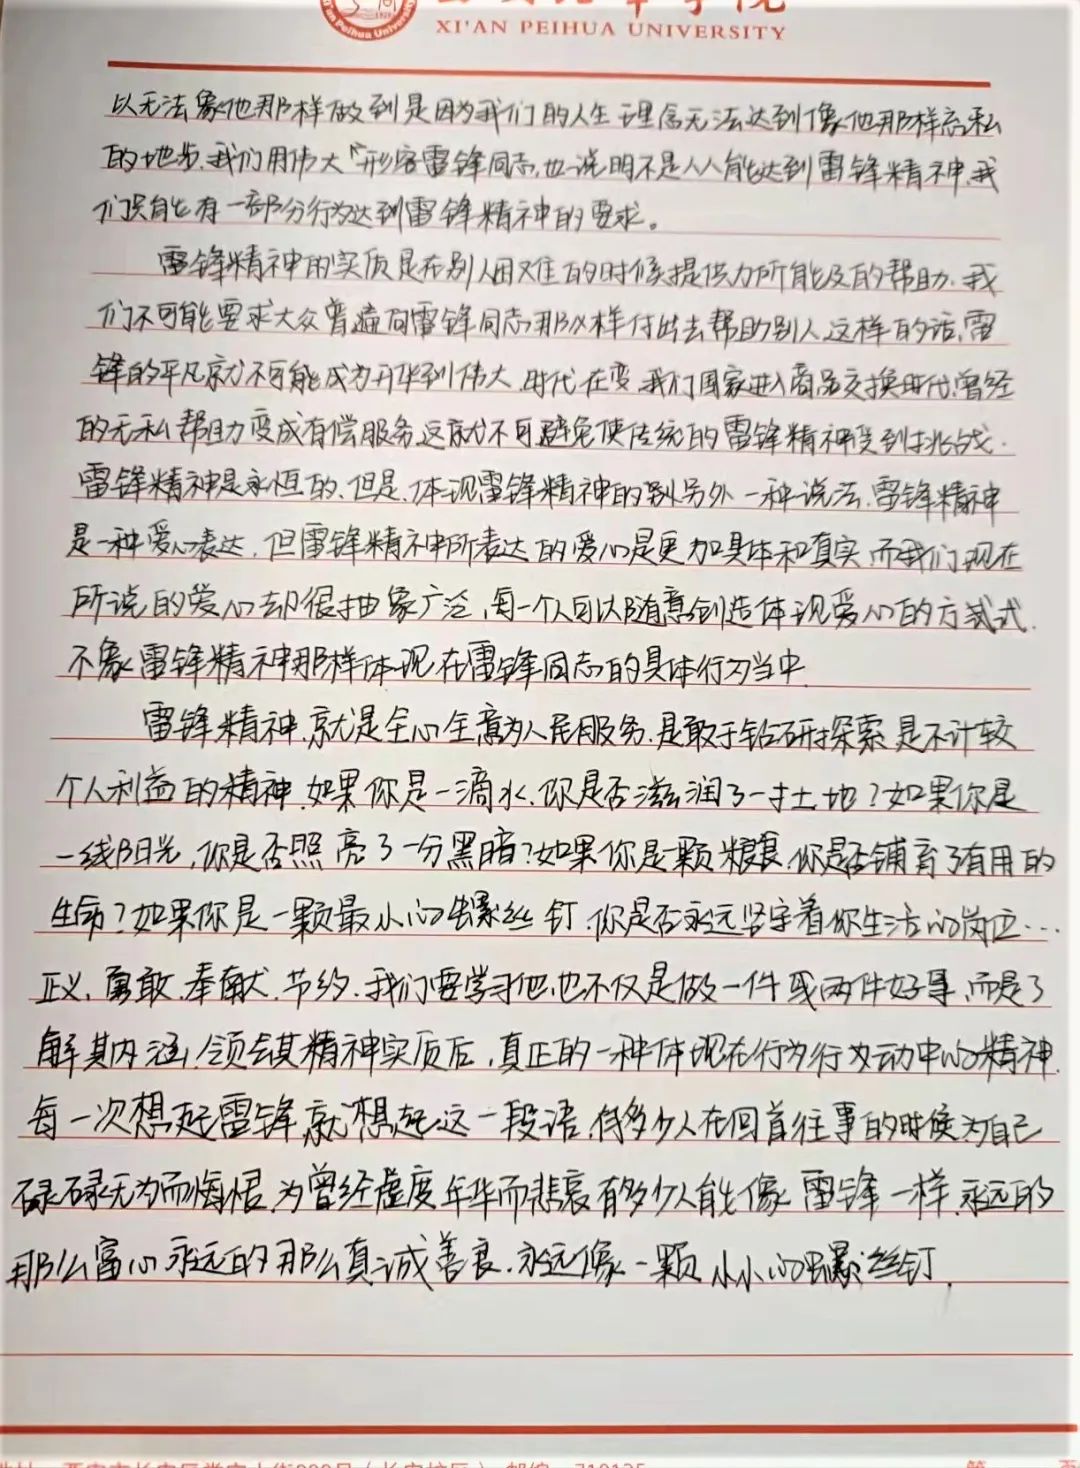 XI'AN PEIHUA UNIVERSITY
以无法象他那样做到是因为我们的人生理念无法达到像他那样无私
的地步.我们用伟大"形容雷锋同志,也说明不是人人能达到雷锋精神.我
们只能有一部分行为达到雷锋精神的要求。
雷锋精神的实质是在别人困难的时候提供力所能及的帮助.我
们不可能要求大众普遍向雷锋同志那样付出去帮助别人.这样的话,雷
锋的平凡就不可能成为升华到伟大.时代在变.我们国家进入商品交换时代.曾经
的无私帮助变成有偿服务.这就不可避免使传统的雷锋精神受到挑战.
雷锋精神是永恒的.但是.体现雷锋精神的别另外一种说法.雷锋精神
是一种爱心表达,但雷锋精神所表达的爱心是更加具体和真实.而我们现在
所说的爱心却很抽象广泛,每一个人可以随意创造体现爱心的方式.
不象雷锋精神那样体现在雷锋同志的具体行为当中.
雷锋精神.就是全心全意为人民服务.是敢于钻研探索是不计较
个人利益的精神.如果你是一滴水.你是否滋润了一寸土地?如果你是
一线阳光,你是否照亮了一分黑暗?如果你是一颗粮食.你是否哺育了有用的
生命?如果你是一颗最小的螺丝钉.你是否永远坚守着你生活的岗位…
正义.勇敢.奉献.节约.我们要学习他.也不仅是做一件或两件好事,而是了
解其内涵,领会其精神实质后,真正的一种体现在行为行动中的精神.
每一次想起雷锋.就想起这一段语.有多少人在回首往事的时候为自己
碌碌无为而悔恨.为曾经虚度年华而悲哀.有多少人能像雷锋一样.永远的
那么富心.永远的那么真诚善良.永远像一颗小小的螺丝钉.